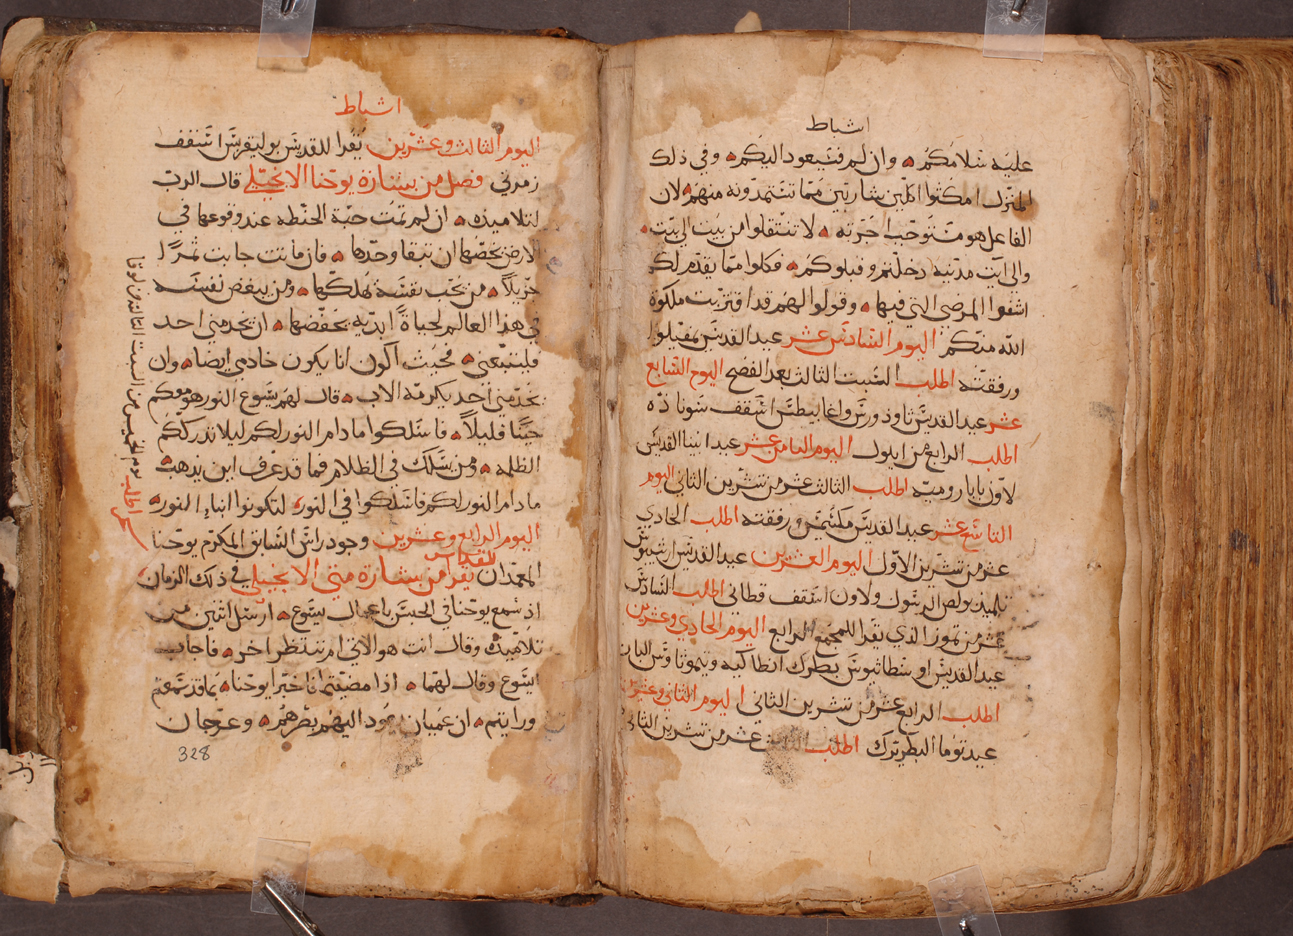 اشباط
عليه سلامكم وان لم فسيعود اليكم وفي ذلك
المنزل امكثوا اكلين شاربين مما تستمدونه منهم لان
الفاعل هو مستوجب اجرته لا تنتقلوا من بيت الى بيت
والى ايت مدينه دخلتم وقبلوكم فكلوا مما يقدم لكم
اشفوا المرضى التي فيها وقولوا لهم قد اقتربت ملكوة
الله منكم اليوم السادس عشر عيد القديس بمفيلوا
ورفقته اطلب السبت الثالث بعد الفصح اليوم السابع
عشر عيد القديس ثاودورس واغابيطس اسقف
اطلب الرابع من ايلول اليوم الثامن عشر عيد ابينا القديس
لاون بابا روميه اطلب الثالث عشر من تشرين الثاني اليوم
التاسع عشر عيد القديس مكسيمس ورفقته اطلب الحادي
عشر من تشرين الاول اليوم العشرين عيد القديس ارشيبوس
تلميذ بولص الرسول ولاون اسقف قطاني اطلب السادس
عشر من تموز الذي يقرا للمجمع الرابع اليوم الحادي وعشرين
عيد القديس اوسطاثيوس بطرك انطاكيه وتيموثاوس
اطلب الرابع عشر من تشرين الثاني اليوم الثاني وعشرين
عيد توما البطريرك اطلب الثالث عشر من تشرين الثاني
اشباط
اليوم الثالث وعشرين يقرا للقديس بوليقربس اسقف
زمرني فصل من بشارة يوحنا الانجيلي قال الرب
لتلاميذه ان لم تمت حبة الحنطه عند وقوعها في
الارض تخصها ان تبقا وحدها فان ماتت جابت ثمرًا
جزيلًا من يحب نفسه يهلكها ومن يبغض نفسه
في هذا العالم لحياة ابديه يحفضها ان يخدمني احد
فليتبعني فحيث اكون انا يكون خادمي ايضا وان
يخدمني احد يكرمه الاب قال لهم يسوع النور هو معكم
حينًا قليلًا فاسلكوا ما دام النور لكم ليلا تدرككم
الظلمه ومن يسلك في الظلام فما قد عرف اين يذهب
ما دام النور لكم فاسلكوا في النور لتكونوا ابناء النور
اليوم الرابع وعشرين وجود راس السابق المكرم يوحنا
للقداس
المعمدان يقرا من بشارة متى الانجيلي في ذلك الزمان
اذ سمع يوحنا في الحبس باعمال يسوع ارسل اثنين من
تلاميذه وقال انت هو الاتي ام ننتظر اخر فاجاب
يسوع وقال لهما اذا مضيتما فاخبرا يوحنا بما قد سمعتم
ورايتم ان عميان يعود اليهم بصرهم وعرجان
328
اطلب يوم الخميس من السبت الثالث من لوقا